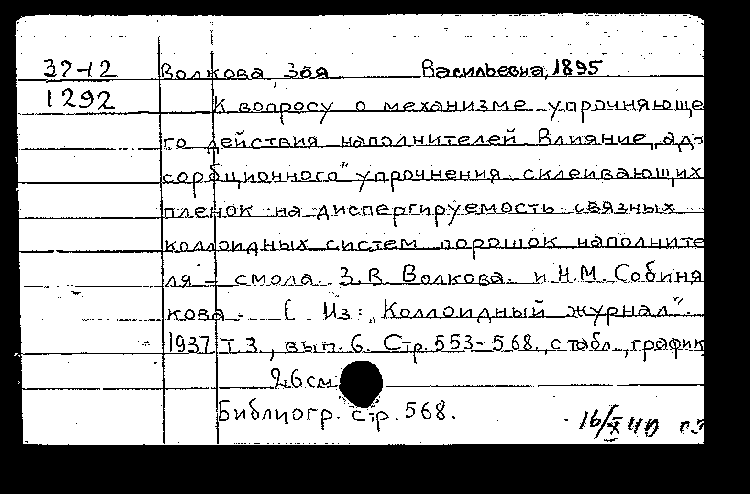 37-12 Волкова, Зоя Васильевна, 1895
1292 К вопросу о механизме упрочняюще
го действия наполнителей Влияние „ад-
сорбционного" упрочнения склеивающих
пленок на диспергируемость связных
коллоидных систем порошок наполните
ля - смола. З.В. Волкова. и Н.М. Собиня
кова. ( Из: „Коллоидный журнал".
1937 Т.3., вып. 6. Стр. 553-568., с табл., график
26 см
Библиогр. стр. 568.
16/X 40